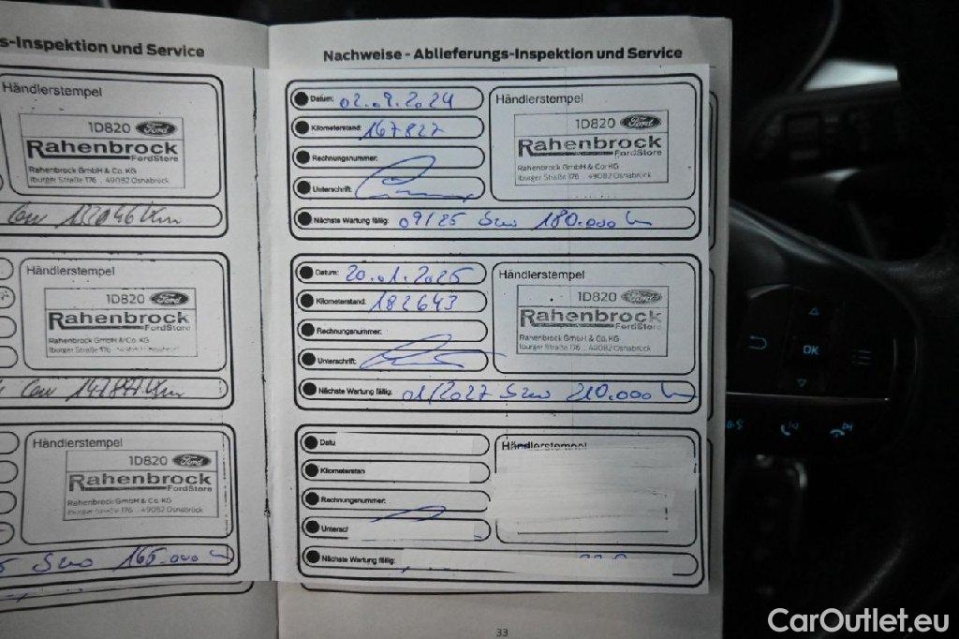 s-Inspektion und Service
Händlerstempel
1D820 Ford
Rahenbrock
FordStore
Rahenbrock GmbH & Co. KG
Iburger Straße 176 . 49082 Osnabrück
Händlerstempel
1D820 Ford
Rahenbrock
FordStore
Rahenbrock GmbH & Co. KG
Iburger Straße 176
Händlerstempel
1D820 Ford
Rahenbrock
FordStore
Rahenbrock GmbH & Co. KG
Iburger Straße 176 . 49082 Osnabrück
165.000
Nachweise - Ablieferungs-Inspektion und Service
Datum: 02.09.2024
Kilometerstand: 167827
Rechnungsnummer:
Unterschrift:
Nächste Wartung fällig: 09/25 180.000
Händlerstempel
1D820 Ford
Rahenbrock
FordStore
Rahenbrock GmbH & Co. KG
Iburger Straße 176 . 49082 Osnabrück
Datum: 20.01.2025
Kilometerstand: 182643
Rechnungsnummer:
Unterschrift:
Nächste Wartung fällig: 01/2027 210.000
Händlerstempel
1D820 Ford
Rahenbrock
FordStore
Rahenbrock GmbH & Co. KG
Iburger Straße 176 . 49082 Osnabrück
Datu
Kilometerstan
Rechnungsnummer:
Untersch
Nächste Wartung fällig:
Händlerstempel
33
OK
CarOutlet.eu